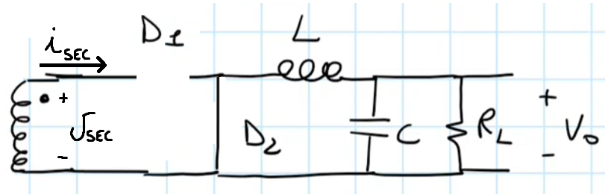 i_SEC D1 L
+
V_SEC
-
D2 C R_L
+
V_o
-